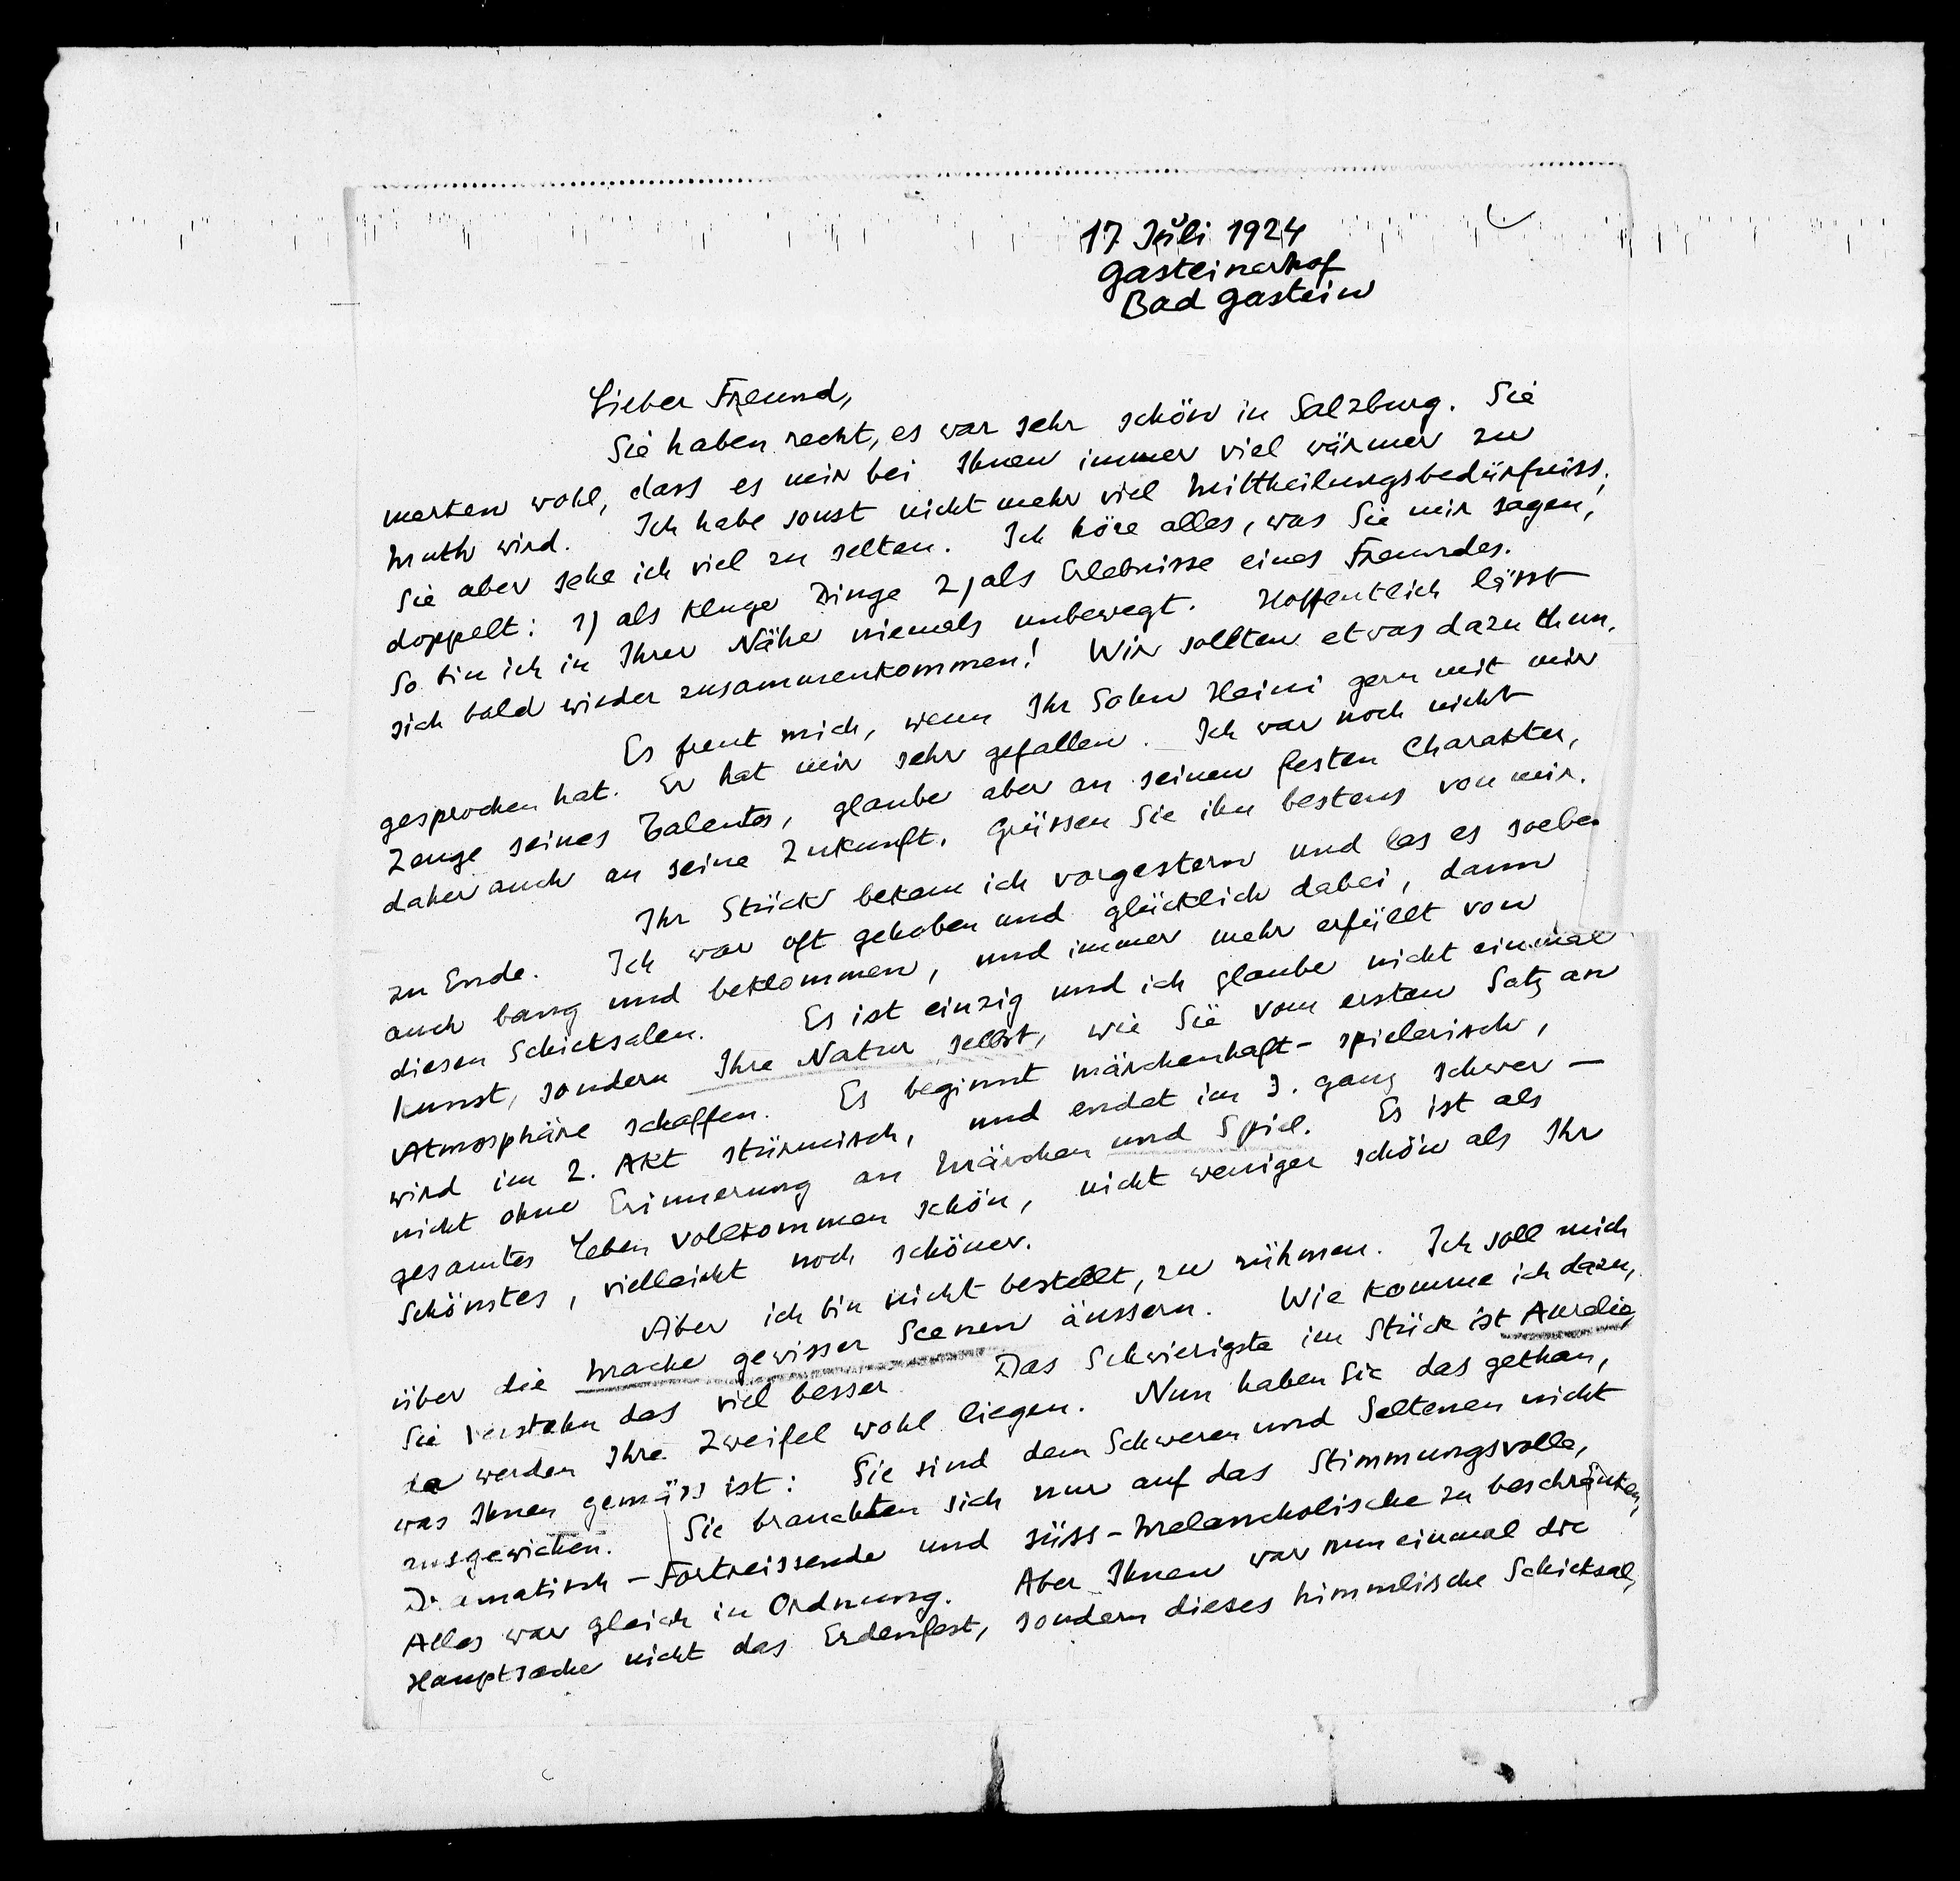 17. Juli 1924
Gasteinerhof
Bad Gastein
Lieber Freund,
Sie haben recht, es war sehr schön in Salzburg. Sie
merken wohl, dass es mir bei Ihnen immer viel wärmer zu
Muth wird. Ich habe sonst nicht mehr viel Mittheilungsbedürfniss.
Sie aber sehe ich viel zu selten. Ich höre alles, was Sie mir sagen,
doppelt: 1) als kluge Dinge 2) als Erlebnisse eines Freundes.
So bin ich in Ihrer Nähe niemals unbewegt. Hoffentlich lässt
sich bald wieder zusammenkommen! Wir sollten etwas dazu thun.
Es freut mich, wenn Ihr Sohn Heini gern mit mir
gesprochen hat. Er hat mir sehr gefallen. Ich war noch nicht
Zeuge seines Talentes, glaube aber an seinen festen Charakter,
daher auch an seine Zukunft. Grüssen Sie ihn bestens von mir.
Ihr Stück bekam ich vorgestern und las es soeben
zu Ende. Ich war oft gehoben und glücklich dabei, dann
auch bang und beklommen, und immer mehr erfüllt von
diesen Schicksalen. Es ist einzig und ich glaube nicht einmal
Kunst, sondern Ihre Natur selbst, wie Sie vom ersten Satz an
Atmosphäre schaffen. Es beginnt märchenhaft-spielerisch,
wird im 2. Akt stürmisch, und endet im 3. ganz schwer —
nicht ohne Erinnerung an Märchen und Spiel. Es ist als
gesamtes Leben vollkommen schön, nicht weniger schön als Ihr
Schönstes, vielleicht noch schöner.
Aber ich bin nicht bestellt, zu rühmen. Ich soll mich
über die Mache gewisser Scenen äussern. Wie komme ich dazu,
Sie verstehn das viel besser. Das Schwierigste im Stück ist Aurelie,
da werden Ihre Zweifel wohl liegen. Nun haben Sie das gethan,
was Ihnen gemäss ist: Sie sind dem Schweren und Seltenen nicht
ausgewichen. Sie brauchten sich nur auf das Stimmungsvolle,
Dramatisch-Fortreissende und süss-Melancholische zu beschränken,
Alles war gleich in Ordnung. Aber Ihnen war nun einmal die
Hauptsache nicht das Erdenfest, sondern dieses himmlische Schicksal,